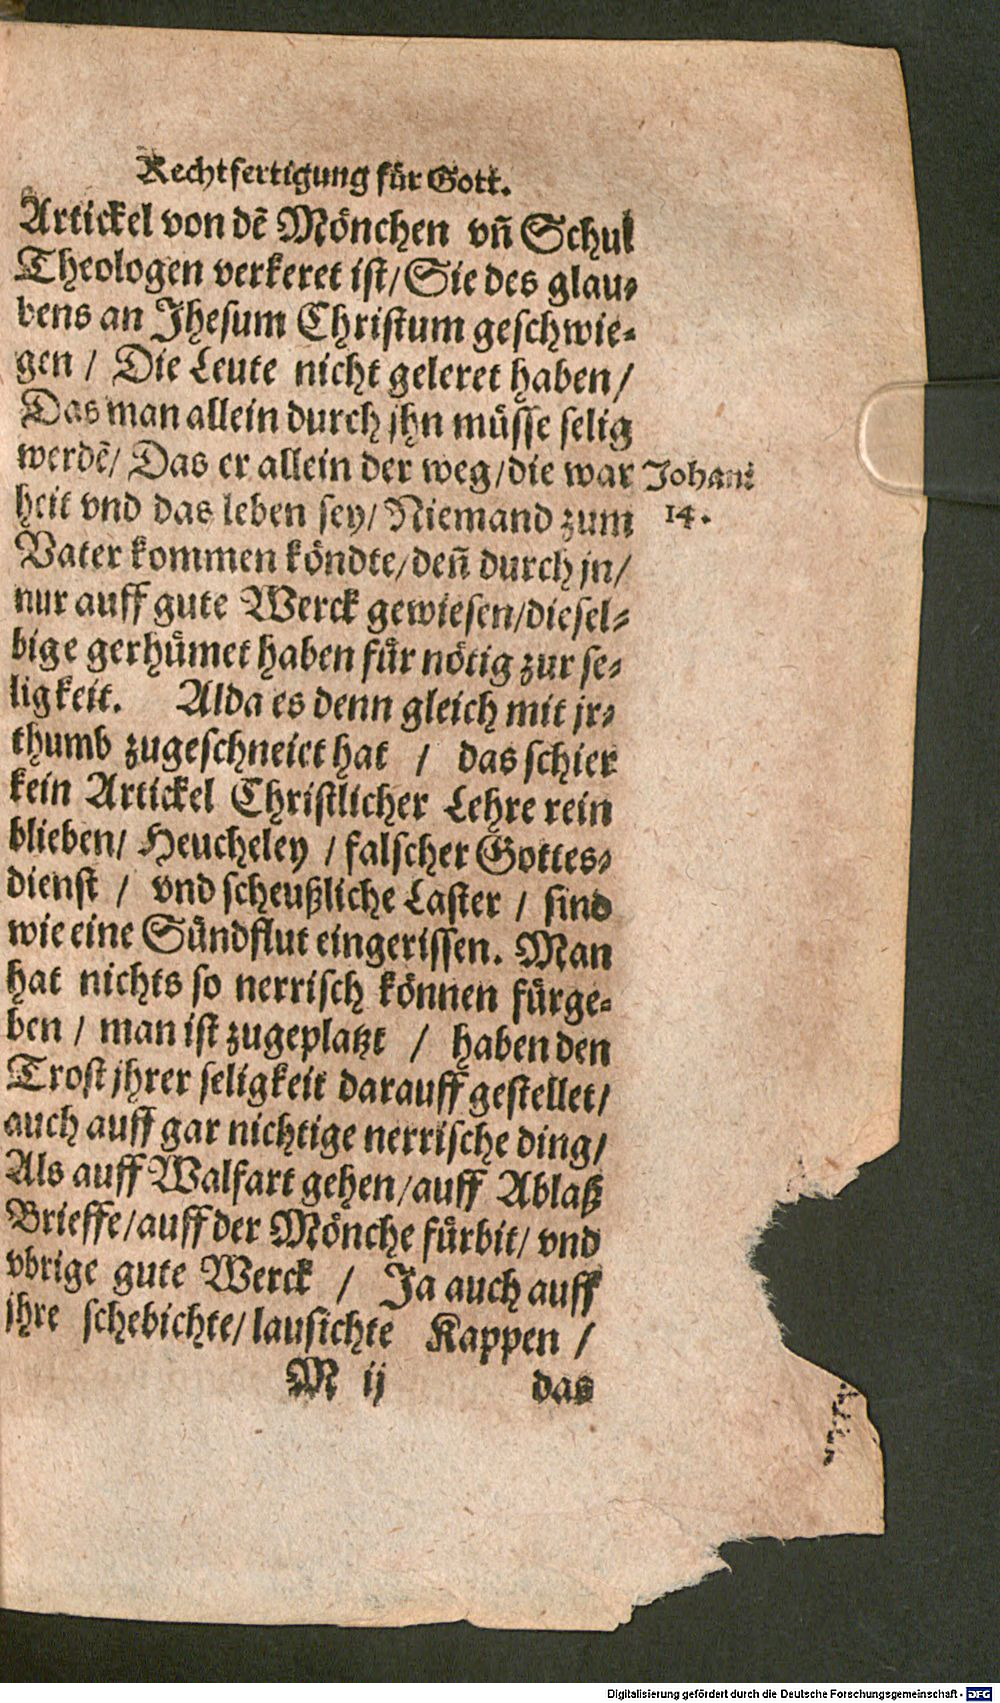 Rechtfertigung für Gott.
Artickel von dē Mönchen vñ Schul
Theologen verkeret ist/ Sie des glau-
bens an Jhesum Christum geschwie-
gen / Die Leute nicht geleret haben/
Das man allein durch jhn müsse selig
werdē/ Das er allein der weg/die war
Johan:
heit vnd das leben sey/ Niemand zum
14.
Vater kommen köndte/deñ durch jn/
nur auff gute Werck gewiesen/diesel-
bige gerhümet haben für nötig zur se-
ligkeit. Alda es denn gleich mit jr-
thumb zugeschneiet hat / das schier
kein Artickel Christlicher Lehre rein
blieben/ Heucheley / falscher Gottes-
dienst / vnd scheußliche Laster / sind
wie eine Sündflut eingerissen. Man
hat nichts so nerrisch können fürge-
ben / man ist zugeplatzt / haben den
Trost jhrer seligkeit darauff gestellet/
auch auff gar nichtige nerrische ding/
Als auff Walfart gehen/auff Ablaß
Brieffe/auff der Mönche fürbit/ vnd
vbrige gute Werck / Ja auch auff
jhre schebichte/lausichte Kappen /
M ij das
Digitalisierung gefördert durch die Deutsche Forschungsgemeinschaft - DFG